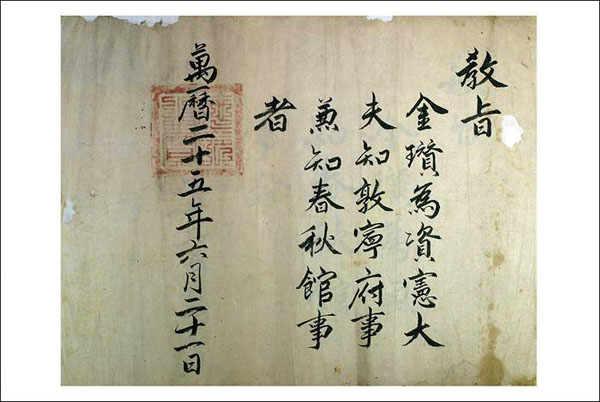 教旨
金瓚為資憲大
夫知敦寧府事
兼知春秋館事
者
萬曆二十五年六月二十一日